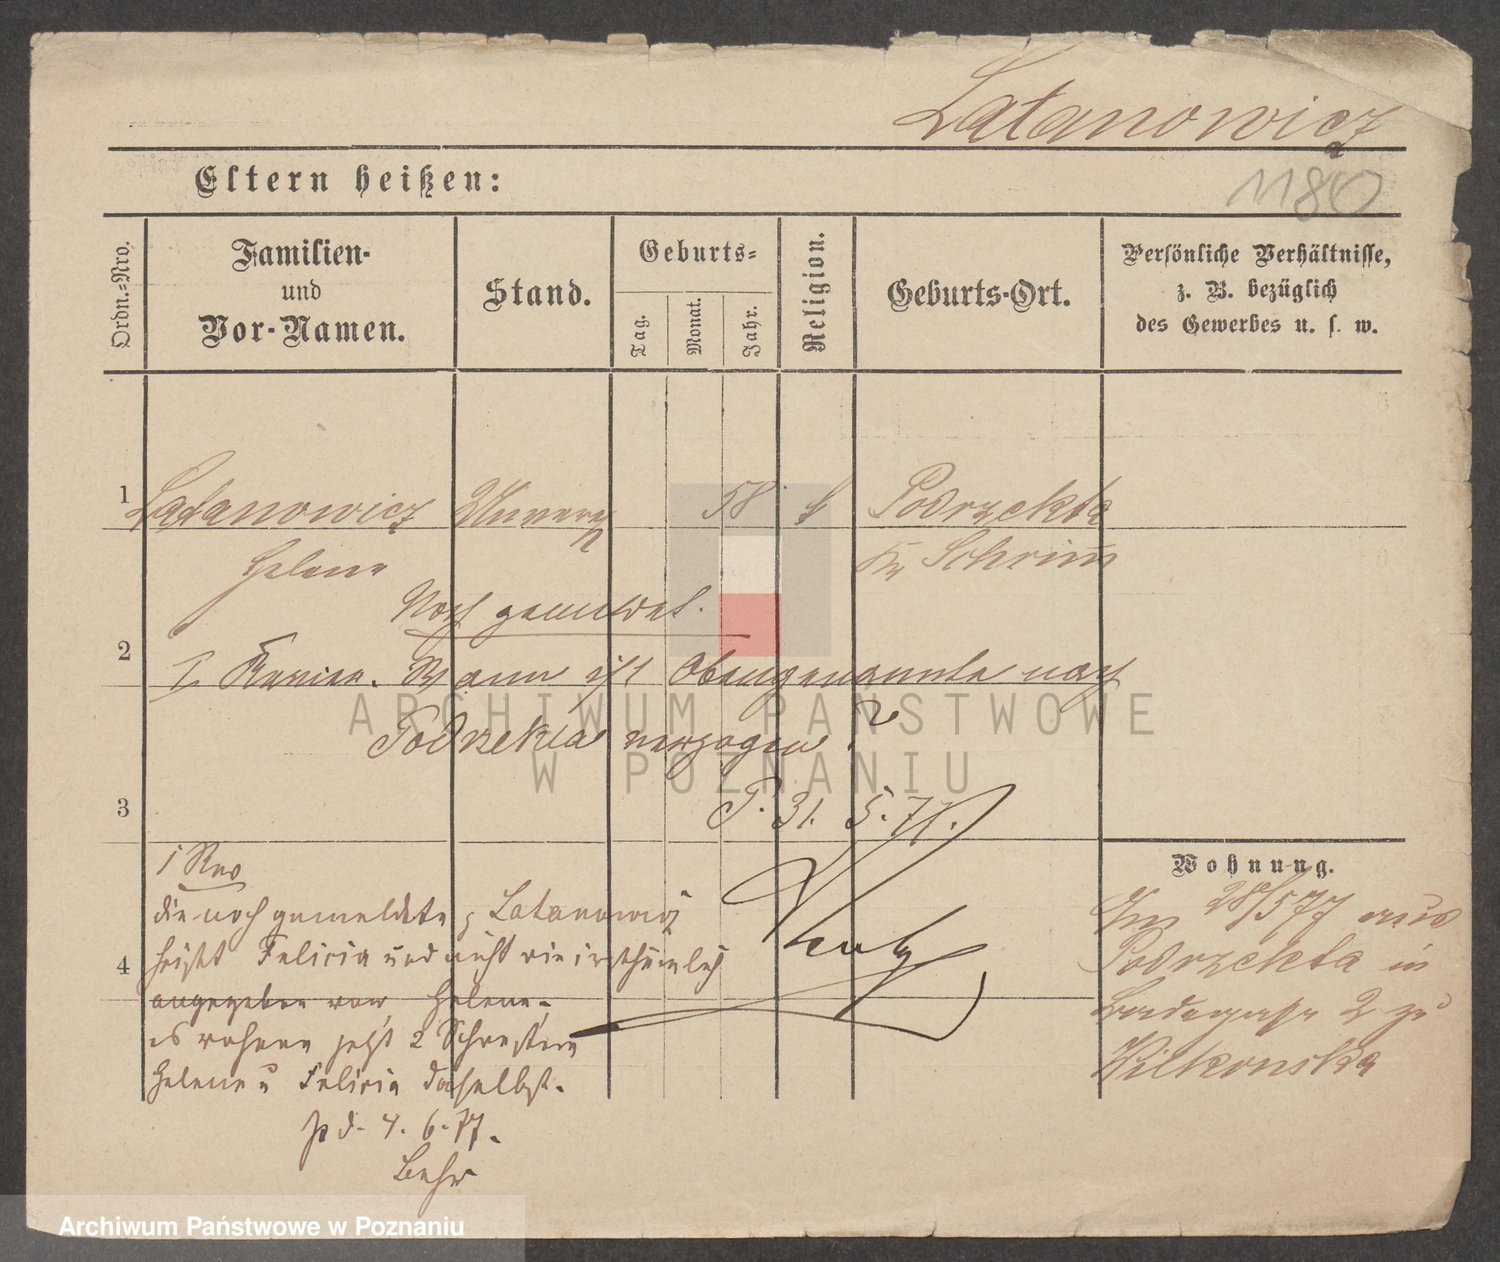 Latanowicz
1180
Eltern heißen:
Ordn.-Nro.
Familien-
und
Vor-Namen.
Stand.
Geburts-
Tag.
Monat.
Jahr.
Religion.
Geburts-Ort.
Persönliche Verhältnisse,
z. B. bezüglich
des Gewerbes u. s. w.
1
Latanowicz
58
Podrzekta
Helene
Kr Schrim
Noch gemeldet.
2
I. Revier. ist Obengenannte nach
Podrzekta verzogen.
P. 31. 5. 77.
3
ARCHIWUM PAŃSTWOWE
W POZNANIU
Wohnung.
28/5 77 aus
Podrzekta in
2 zu
Wilkonska
1 Rev
die noch gemeldete Latanowicz
heißt Felicia und nicht wie irrthümlich
4
angegeben war, Helene,
es wohnen jetzt 2 Schwestern
Helene u Felicia daselbst.
P d. 4. 6. 77.
Behr
Archiwum Państwowe w Poznaniu